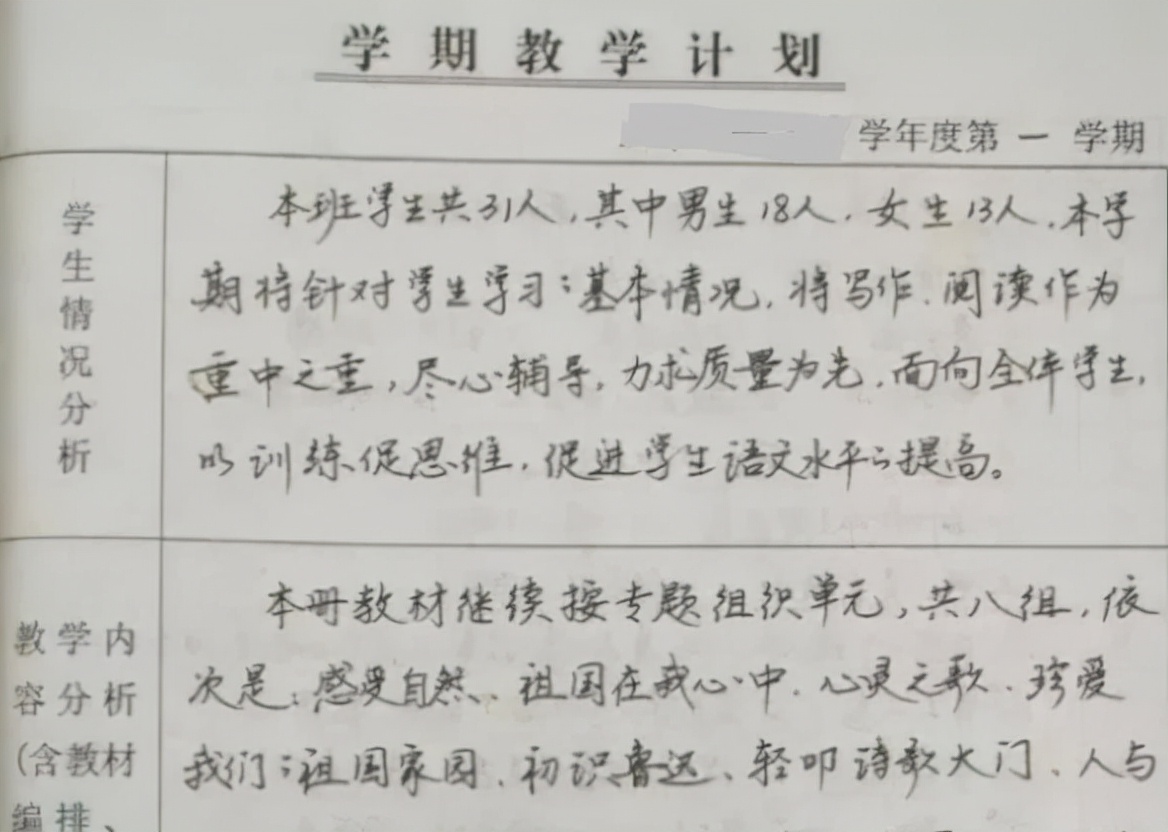 学期教学计划
学年度第一学期
学生情况分析
本班学生共31人,其中男生18人,女生13人,本学
期将针对学生学习的基本情况,将写作、阅读作为
重中之重,尽心辅导,力求质量为先,面向全体学生,
以训练促思维,促进学生语文水平的提高。
教学内
容分析
(含教材
编排、
本册教材继续按专题组织单元,共八组,依
次是:感受自然、祖国在我心中、心灵之歌、珍爱
我们的祖国家园、初识鲁迅、轻叩诗歌大门、人与